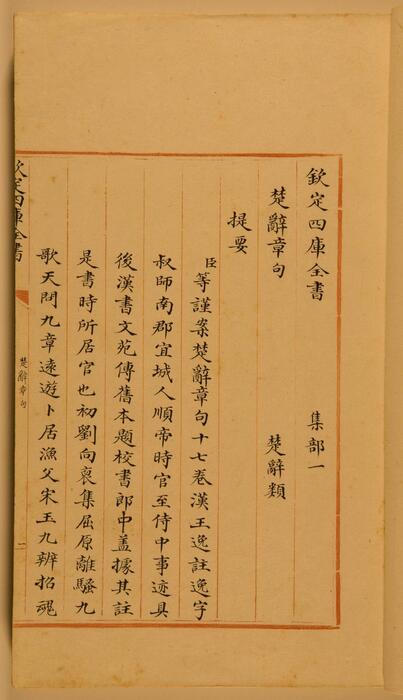 欽定四庫全書　集部一
楚辭章句　楚辭類
提要
臣等謹案楚辭章句十七卷漢王逸註逸字
叔師南郡宜城人順帝時官至侍中事迹具
後漢書文苑傳舊本題校書郎中蓋據其註
是書時所居官也初劉向裒集屈原離騷九
歌天問九章遠遊卜居漁父宋玉九辨招魂
欽定四庫全書
楚辭章句
一